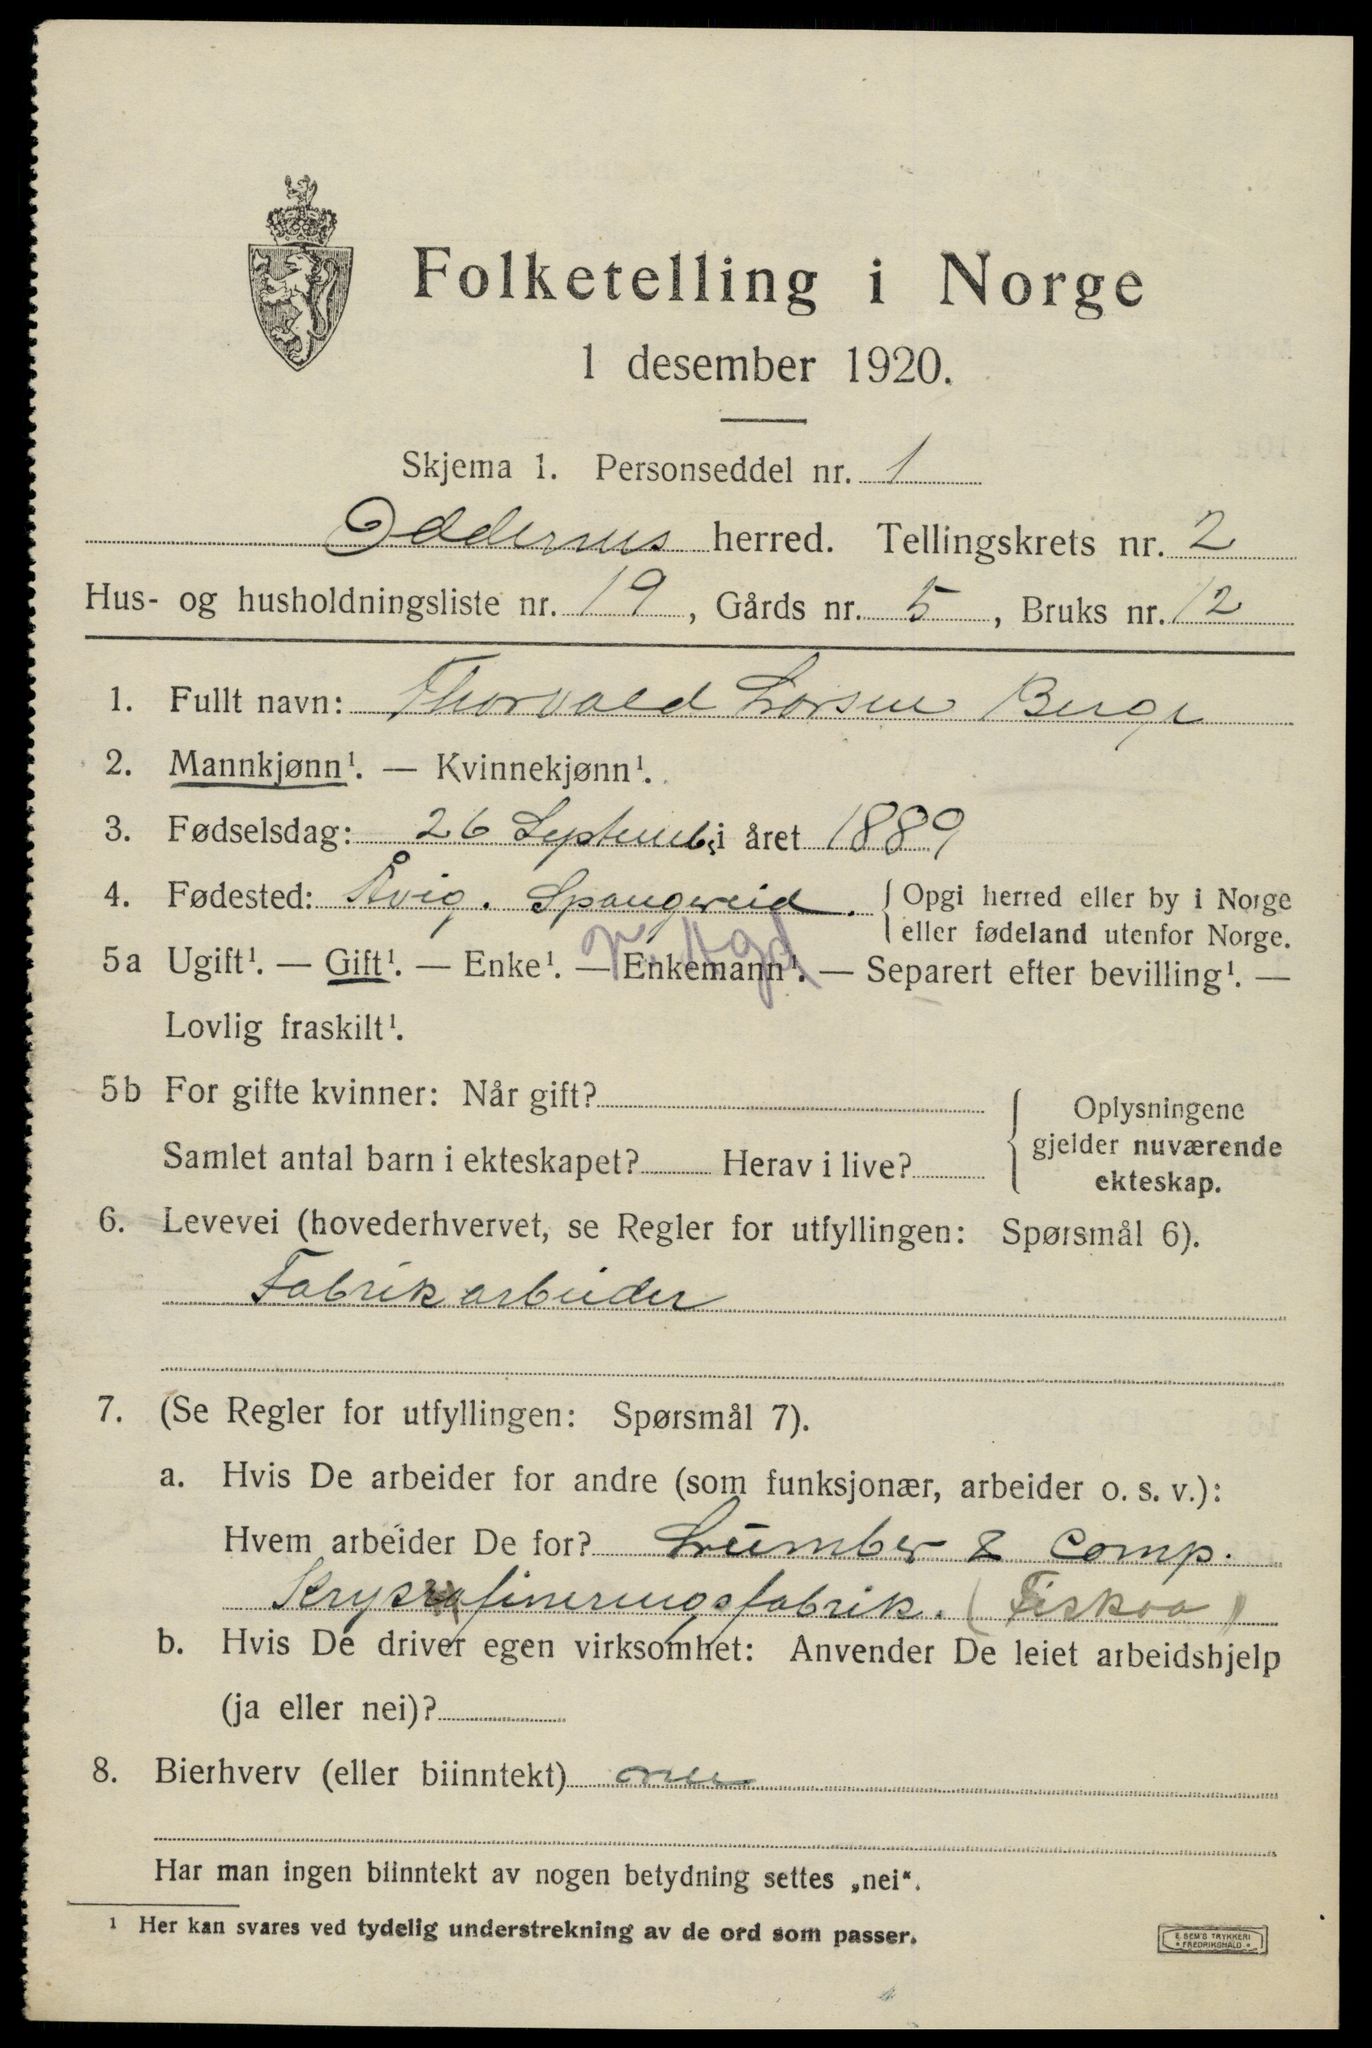 Folketelling i Norge
1 desember 1920.
Skjema 1. Personseddel nr. 1
Oddernes herred. Tellingskrets nr. 2
Hus- og husholdningsliste nr. 19, Gårds nr. 5, Bruks nr. 12
1. Fullt navn: Thorvald Larsen Berge
2. Mannkjønn¹. — Kvinnekjønn¹.
3. Fødselsdag: 26 Septemb. i året 1889
4. Fødested: Åvig. Spangereid. { Opgi herred eller by i Norge
eller fødeland utenfor Norge.
V. Agd
5a Ugift¹. — Gift¹. — Enke¹. — Enkemann¹. — Separert efter bevilling¹. —
Lovlig fraskilt¹.
5b For gifte kvinner: Når gift?
Samlet antal barn i ekteskapet? Herav i live?
{ Oplysningene
gjelder nuværende
ekteskap.
6. Levevei (hovederhvervet, se Regler for utfyllingen: Spørsmål 6).
Fabrikarbeider
7. (Se Regler for utfyllingen: Spørsmål 7).
a. Hvis De arbeider for andre (som funksjonær, arbeider o. s. v.):
Hvem arbeider De for? & Comp.
(Fiskaa)
b. Hvis De driver egen virksomhet: Anvender De leiet arbeidshjelp
(ja eller nei)?
8. Bierhverv (eller biinntekt)
Har man ingen biinntekt av nogen betydning settes „nei“.
¹ Her kan svares ved tydelig understrekning av de ord som passer.
E. SEM'S TRYKKERI
• FREDRIKSHALD •